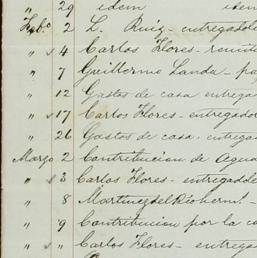 " 29 idem idem
Feb.o 2 L. Ruiz - entregadole
" s 4 Carlos Flores - remit
" 7 Guillermo Landa - pa
" 12 Gastos de casa entrega
" s 17 Carlos Flores - entregado
" 26 Gastos de casa - entrega
Marzo 2 Contribucion de Agua
" s 3 Carlos Flores - entregadole
" 8 Martinez del Rio herm.s -
" 9 Contribucion por la c
" s " Carlos Flores - entregad